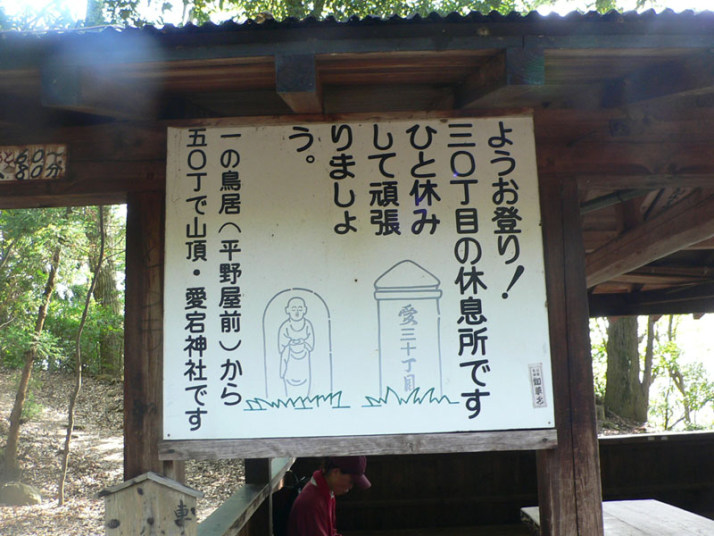 ようお登り!
三〇丁目の休息所です
ひと休み
して頑張
りましょ
う。
一の鳥居(平野屋前)から
五〇丁で山頂・愛宕神社です
愛三十丁目
60分
80分